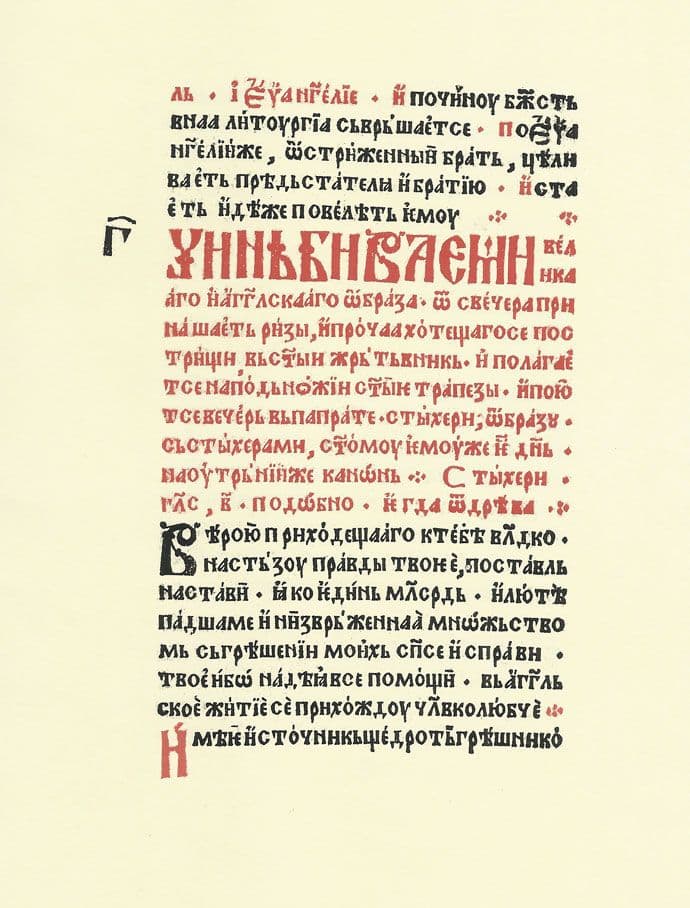 ль · і Єѵ҃анг҃елїе · и҆ почи́ноу бж҃сть
внаа ли́тоургїа сьврьшае҆тсе · по Єѵ҃а
нг҃елїи́же, ѿстри́женный бра́ть, цѣ́ли
ва е҆ть прѣ́дьстатели и҆ бра́тїю · и҆ ста
е҆ть и҆дѣ́же повели́ть ѥмоу
г҃
Чинь бываѥмїи ве́л
ика
аго а҆гг҃лскааго ѡ҆́браза · ѿ све́чера при
на́шае҆ть ри́зы, и҆ про́чаа хо́тещаго се пос
три́щи, вь ст҃ыи жрь́тьвникь · и҆ полагае҆
тсе на по́дьножїи ст҃ы́ѥ тра́пезы · и҆ пою҆
тсе вече́рь вь папра́те · сты́хери, ѡ҆́бразу ·
сьсты́херами, ст҃омоу ѥмоу́же ѥ҆ дн҃ь ·
на оу҆́трьнїи́же кано́нь · Сты́хери ·
гл҃с, в҃ · подо́бно · ѥ҆гда ѿ дрѣ́ва ·
Вѣ́рою при́ходещааго к тебѣ̀ вл҃дко ·
на сть́зоу пра́вды твоѥѐ, поста́вль
наста́ви · ꙗ҆ко ѥ҆ди́нь мл҃срдь · и҆ лю́тѣ
па́дшаме и҆ ни́зврьженнаа̀ мно́жьство
мь сьгрѣше́нїи мои́хь сп҃се и҆ спра́ви ·
твое҆ и҆бо̀ на́дѣꙗ҆все помо́щи · вь а҆гг҃ль
скоѐ жи́тїѐ сѐ прихо́ждоу чл҃вколюбчѐ
И҆мѣѥ҆ и҆сто́чникь ще́дроть грѣ́шнико́